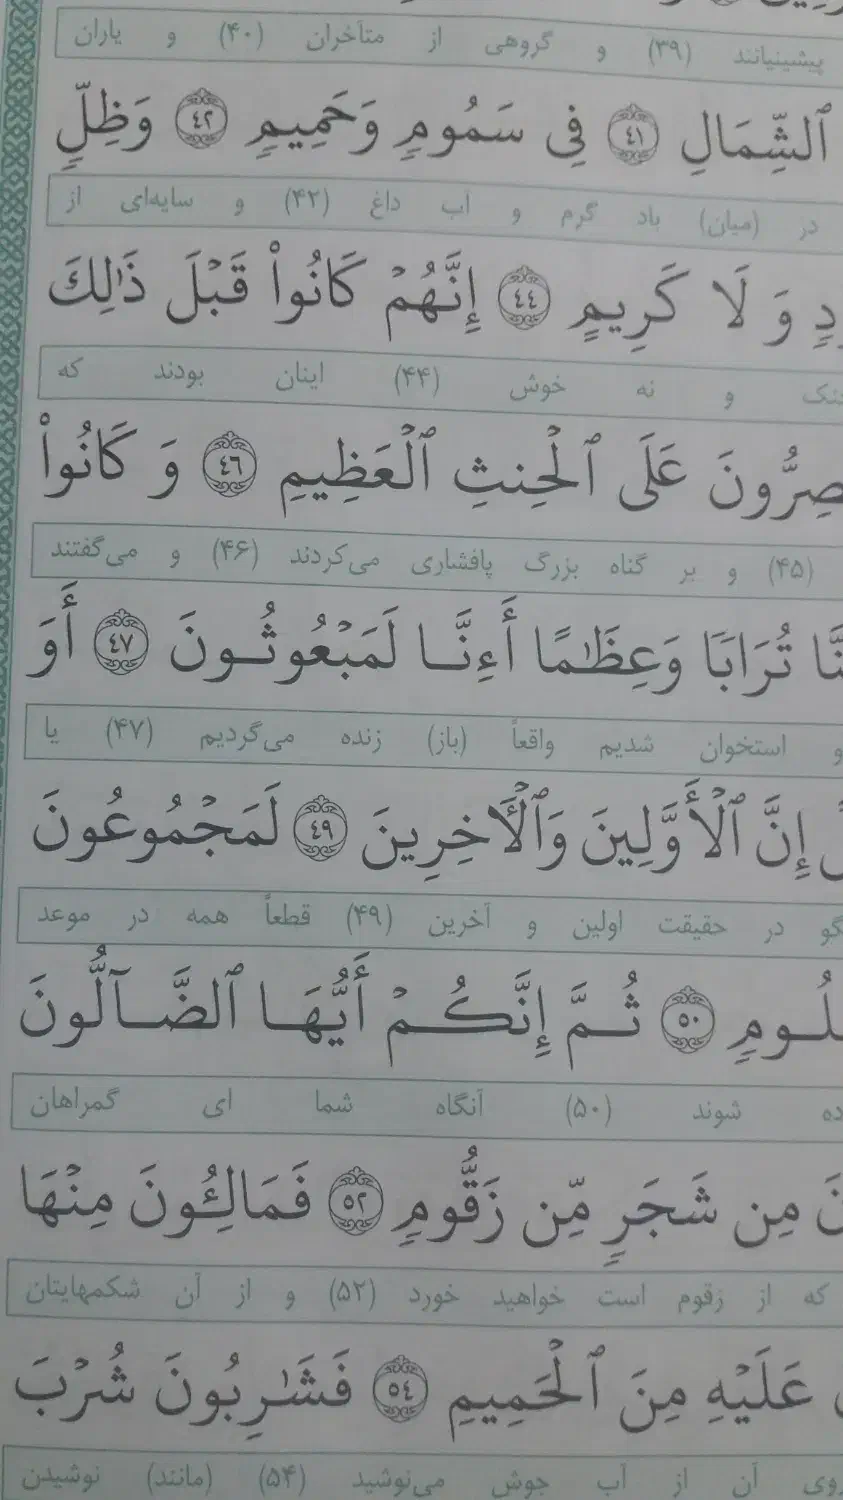 پیشینیانند (۳۹) و گروهی از متأخران (۴۰) و یاران
ٱلشِّمَالِ ٤١ فِى سَمُومٍ وَحَمِيمٍ ٤٢ وَظِلٍّ
در (میان) باد گرم و آب داغ (۴۲) و سایه‌ای از
وَ لَا كَرِيمٍ ٤٤ إِنَّهُمْ كَانُوا۟ قَبْلَ ذَٰلِكَ
و نه خوش (۴۴) اینان بودند که
عَلَى ٱلْحِنثِ ٱلْعَظِيمِ ٤٦ وَ كَانُوا۟
(۴۵) و بر گناه بزرگ پافشاری می‌کردند (۴۶) و می‌گفتند
تُرَابًا وَعِظَٰمًا أَءِنَّا لَمَبْعُوثُونَ ٤٧ أَوَ
و استخوان شدیم واقعاً (باز) زنده می‌گردیم (۴۷) یا
إِنَّ ٱلْأَوَّلِينَ وَٱلْءَاخِرِينَ ٤٩ لَمَجْمُوعُونَ
در حقیقت اولین و آخرین (۴۹) قطعاً همه در موعد
٥٠ ثُمَّ إِنَّكُمْ أَيُّهَا ٱلضَّآلُّونَ
شوند (۵۰) آنگاه شما ای گمراهان
مِن شَجَرٍ مِّن زَقُّومٍ ٥٢ فَمَالِـُٔونَ مِنْهَا
که از زقوم است خواهید خورد (۵۲) و از آن شکمهایتان
عَلَيْهِ مِنَ ٱلْحَمِيمِ ٥٤ فَشَٰرِبُونَ شُرْبَ
روی آن از آب جوش می‌نوشید (۵۴) (مانند) نوشیدن